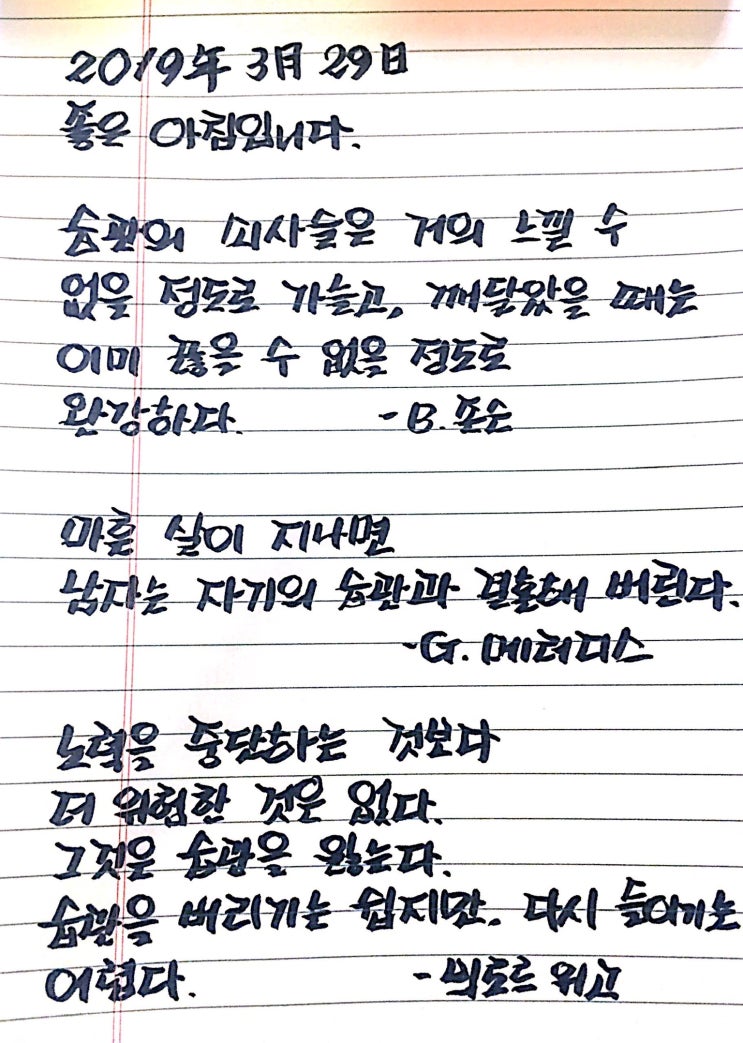 2019年 3月 29日
좋은 아침입니다.
습관의 쇠사슬은 거의 느낄 수
없을 정도로 가늘고, 깨달았을 때는
이미 끊을 수 없을 정도로
완강하다. -B. 존슨
마흔 살이 지나면
남자는 자기의 습관과 결혼해 버린다.
-G. 메러디스
노력을 중단하는 것보다
더 위험한 것은 없다.
그것은 습관을 잃는다.
습관을 버리기는 쉽지만, 다시
어렵다. -빅토르 위고